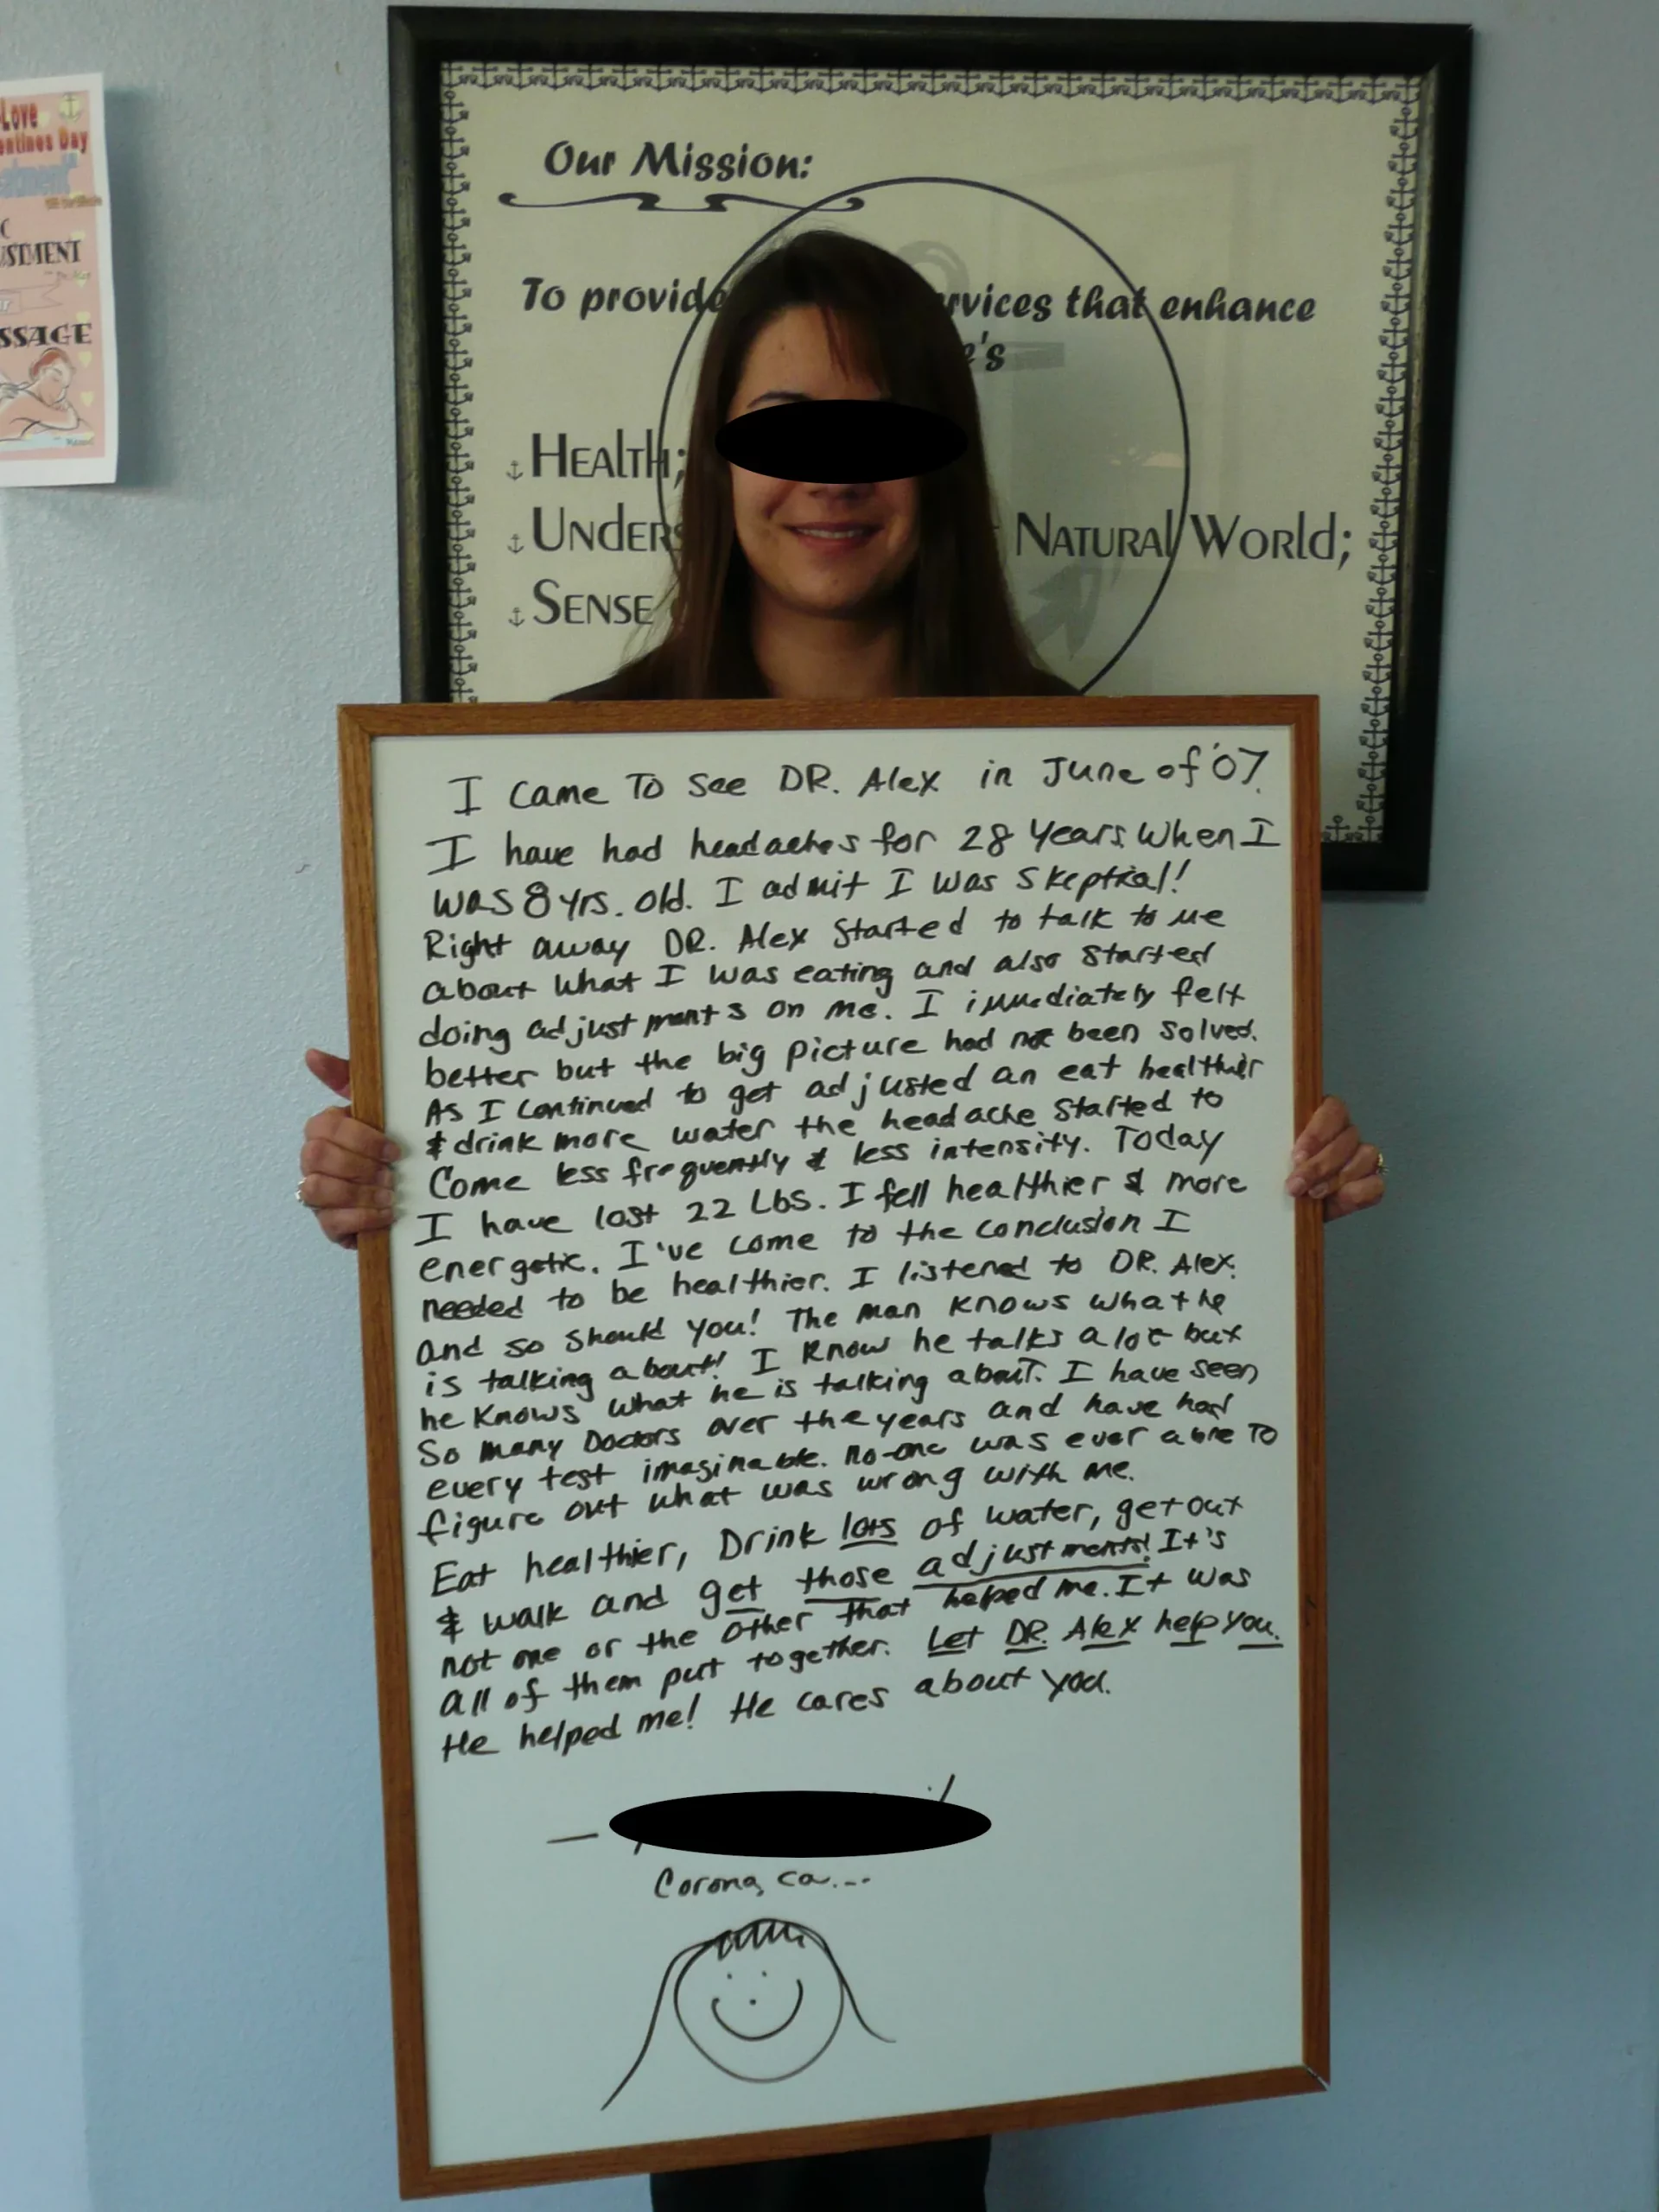 Love
entines Day
USTMENT
SSAGE
Our Mission:
To provide rvices that enhance
e's
Health;
Unders Natural World;
Sense
I came To see DR. Alex in June of '07.
I have had headaches for 28 years when I
was 8 yrs. old. I admit I was skeptical!
Right away DR. Alex started to talk to me
about what I was eating and also started
doing adjustments on me. I immediately felt
better but the big picture had not been solved.
As I continued to get adjusted an eat healthier
& drink more water the headache started to
Come less frequently & less intensity. Today
I have lost 22 Lbs. I fell healthier & more
energetic. I've come to the conclusion I
needed to be healthier. I listened to DR. Alex.
and so should you! The man knows what he
is talking about! I know he talks a lot but
he knows what he is talking about. I have seen
So many Doctors over the years and have had
every test imaginable. no-one was ever able To
figure out what was wrong with me.
Eat healthier, Drink lots of water, get out
& walk and get those adjustments! It's
not one or the other that helped me. It was
all of them put together. Let DR. Alex help you.
He helped me! He cares about you.
Corona, ca...